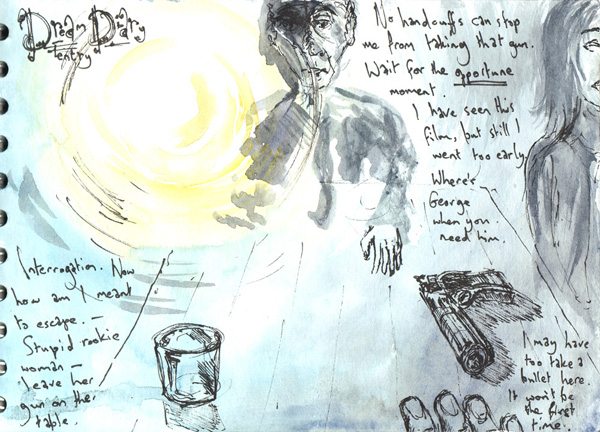 Dream Diary
Entry
No handcuffs can stop
me from taking that gun.
Wait for the opportune
moment.
I have seen this
film, but still I
went too early.
Where's
George
when you
need him.
Interrogation. Now
how am I meant
to escape. –
Stupid rookie
woman –
leave her
gun on the
table.
I may have
too take a
bullet here.
It won't be
the first
time.